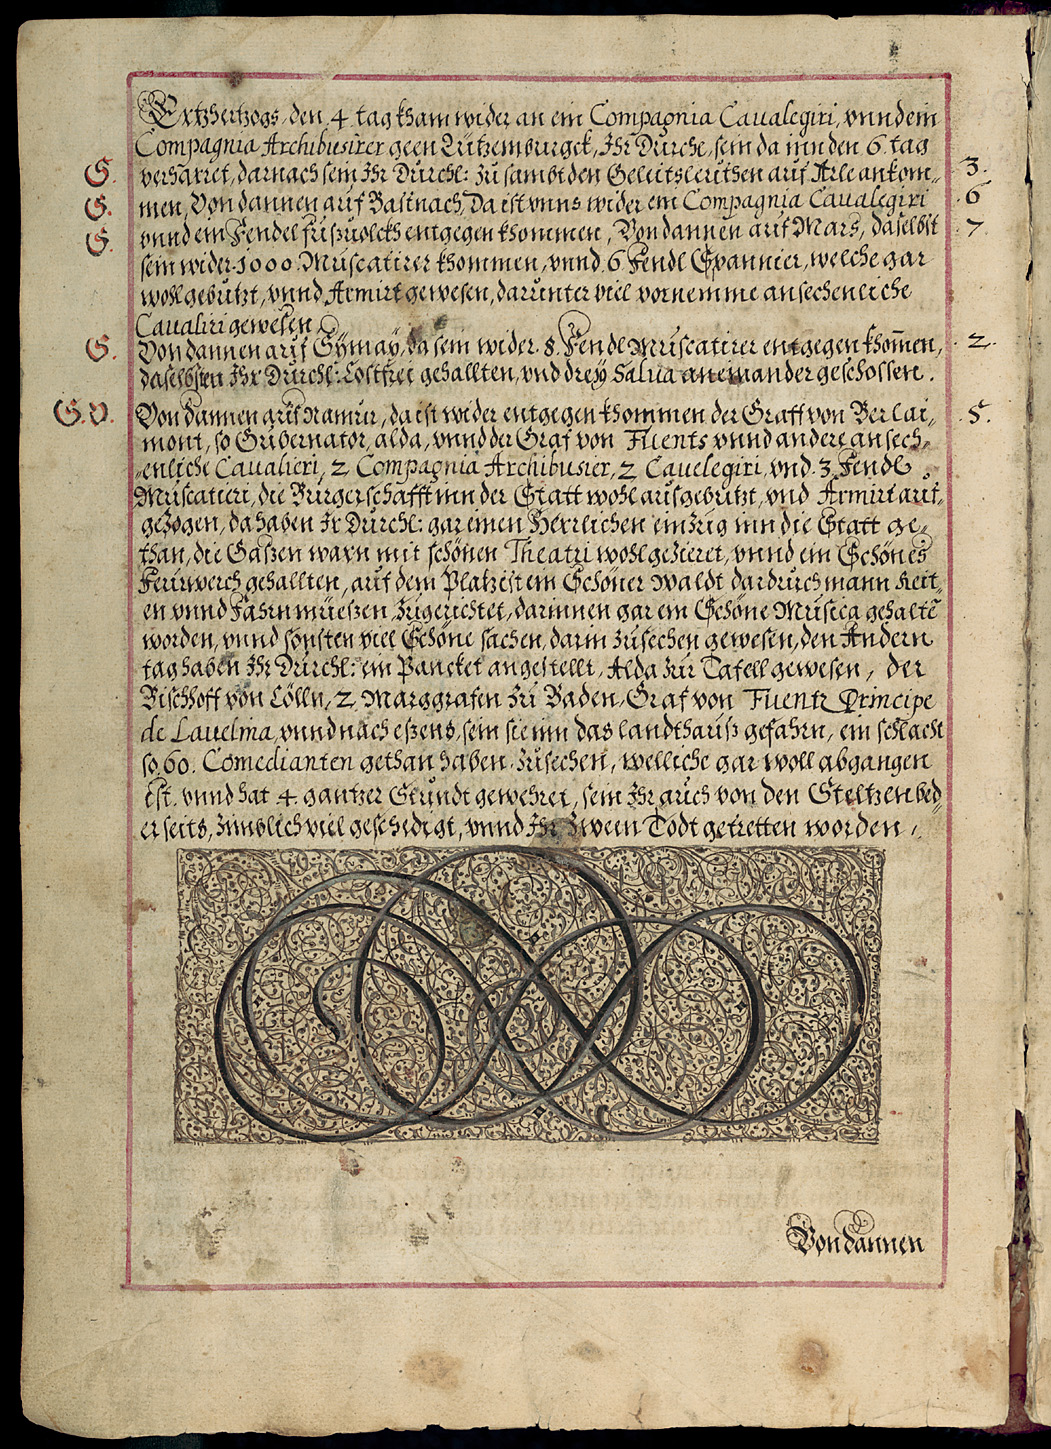 Ertzhertzogs, den 4 tag kham wider an ein Compagnia Caualegiri, vnnd ein
Compagnia Archibusirer geen Lützemburgck, Ihr Durche, sein da inn den 6. tag
S. verharret, darnach sein Ihr Durchl: zu sambt den Geleitsleuthen auf Arle ankom- 3.
S. men, Von dannen auf Bastnach, Da ist vnns wider ein Compagnia Caualegiri 6
S. vnnd ein Fendel fuszuolckh entgegen khommen, Von dannen auf Mars, daselbst 7.
sein wider 1000 Muscatirer khommen, vnnd 6 Fendl Spannier, welche gar
wohl gebutzt, vnnd Armirt gewesen, darunter viel vornemme ansechenliche
Caualiri gewesen.
S. Von dannen auf Gÿmaÿ, da sein wider 8. Fendl Muscatirer entgegen khom̃en, 2.
daselbsten Ihr Durchl: Costfrei gehallten, vnd dreÿ Salua aneinander geschossen.
S. V. Von dannen auf Namur, da ist wider entgegen khommen der Graff von Berlai- 5.
mont, so Gubernator, alda, vnnd der Graf von Fuents vnnd andere ansech-
enliche Caualieri, 2 Compagnia Archibusier, 2 Cauelegiri, vnd 3 Fendl
Muscatieri, die Burgerschafft inn der Statt wohl ausgebutzt, vnd Armirt auf-
gezogen, da haben Ir Durchl: gar einen Herrlichen einzug inn die Statt ge-
than, die Gaszen warn mit schönen Theatri wohl gezieret, vnnd ein Schönes
Feürwerch gehallten, auf dem Platz ist ein Schöner Waldt dardurch mann Reit-
en vnnd Fahrn müeszen, zugerichtet, darinnen gar ein Schöne Musica gehaltẽ
worden, vnnd sonsten viel Schöne sachen, darin zusechen gewesen, den Andern
tag haben Ihr Durchl: ein Pancket angestellt, Alda zur Tafell gewesen, der
Bischhoff von Cölln, 2 Marggrafen zu Baden, Graf von Fuentz Principe
de Lauelma, vnnd nach eszens, sein sie inn das landthausz gefahrn, ein schlacht
so 60. Comedianten gethan haben zusechen, welliche gar woll abgangen
ist. vnnd hat 4. gantzer Stundt gewehret, sein Ihr auch von den Steltzen bed-
erseits, zimblich viel geschedigt, vnnd Ihr zween Todt getretten worden.
Von dannen